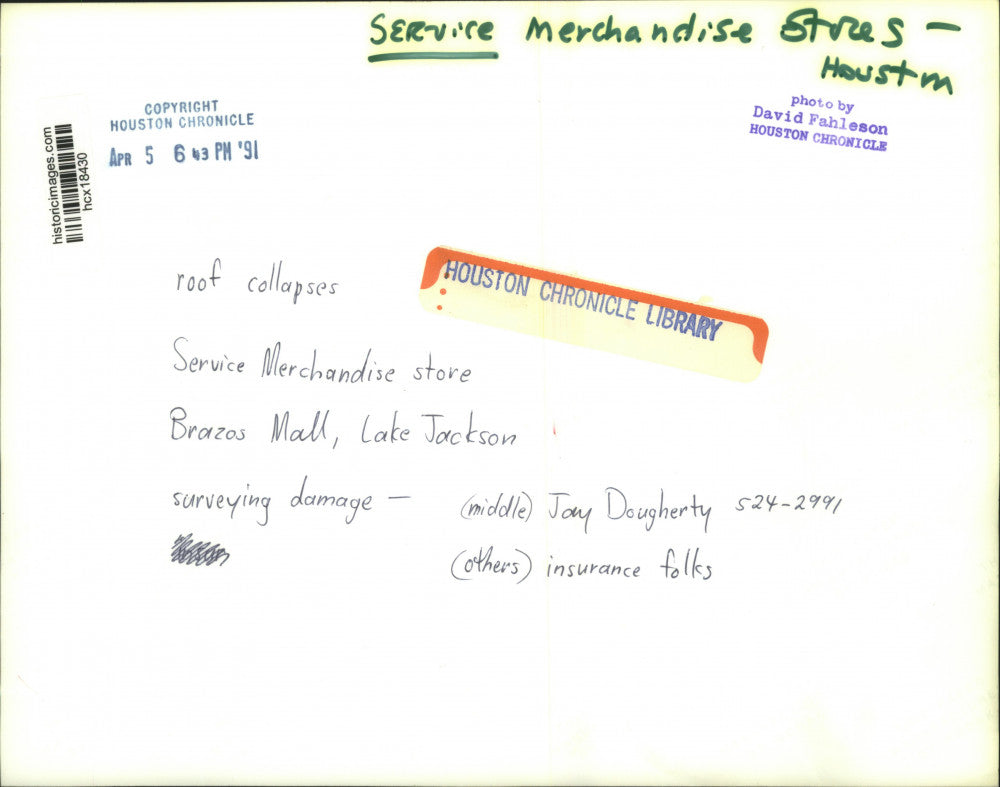 Service Merchandise Stores —
Houston
COPYRIGHT
HOUSTON CHRONICLE
APR 5 6 43 PM '91
photo by
David Fahleson
HOUSTON CHRONICLE
historicimages.com
hcx18430
roof collapses
HOUSTON CHRONICLE LIBRARY
Service Merchandise store
Brazos Mall, Lake Jackson
surveying damage — (middle) Jay Dougherty 524-2991
(others) insurance folks